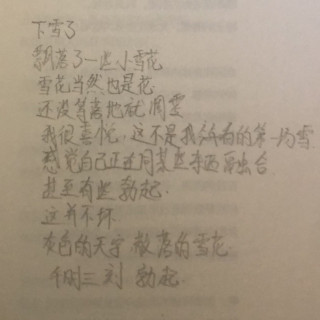 下雪了
飘落了一些小雪花
雪花当然也是花
还没等落地就凋零
我很喜忙，这不是我所有的第一场雪
感觉自己正在同某些东西
甚至有些勃起
这并不坏
灰色的天宇 散落的雪花
勃起